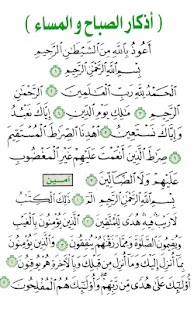 ( أذكار الصباح و المساء )
أَعُوذُ بِاللَّهِ مِنَ الشَّيْطَٰنِ الرَّجِيمِ
بِسْمِ اللَّهِ الرَّحْمَٰنِ الرَّحِيمِ ۝
الْحَمْدُ لِلَّهِ رَبِّ الْعَٰلَمِينَ ۝ الرَّحْمَٰنِ
الرَّحِيمِ ۝ مَٰلِكِ يَوْمِ الدِّينِ ۝ إِيَّاكَ نَعْبُدُ
وَإِيَّاكَ نَسْتَعِينُ ۝ اهْدِنَا الصِّرَٰطَ الْمُسْتَقِيمَ
۝ صِرَٰطَ الَّذِينَ أَنْعَمْتَ عَلَيْهِمْ غَيْرِ الْمَغْضُوبِ
عَلَيْهِمْ وَلَا الضَّالِّينَ ۝ آمين
بِسْمِ اللَّهِ الرَّحْمَٰنِ الرَّحِيمِ الم ۝ ذَٰلِكَ الْكِتَٰبُ
لَا رَيْبَ فِيهِ هُدًى لِلْمُتَّقِينَ ۝ الَّذِينَ يُؤْمِنُونَ بِالْغَيْبِ
وَيُقِيمُونَ الصَّلَوٰةَ وَمِمَّا رَزَقْنَٰهُمْ يُنْفِقُونَ ۝ وَالَّذِينَ يُؤْمِنُونَ
بِمَا أُنْزِلَ إِلَيْكَ وَمَا أُنْزِلَ مِنْ قَبْلِكَ وَبِالْآخِرَةِ هُمْ يُوقِنُونَ ۝
أُولَٰئِكَ عَلَىٰ هُدًى مِنْ رَبِّهِمْ وَأُولَٰئِكَ هُمُ الْمُفْلِحُونَ ۝